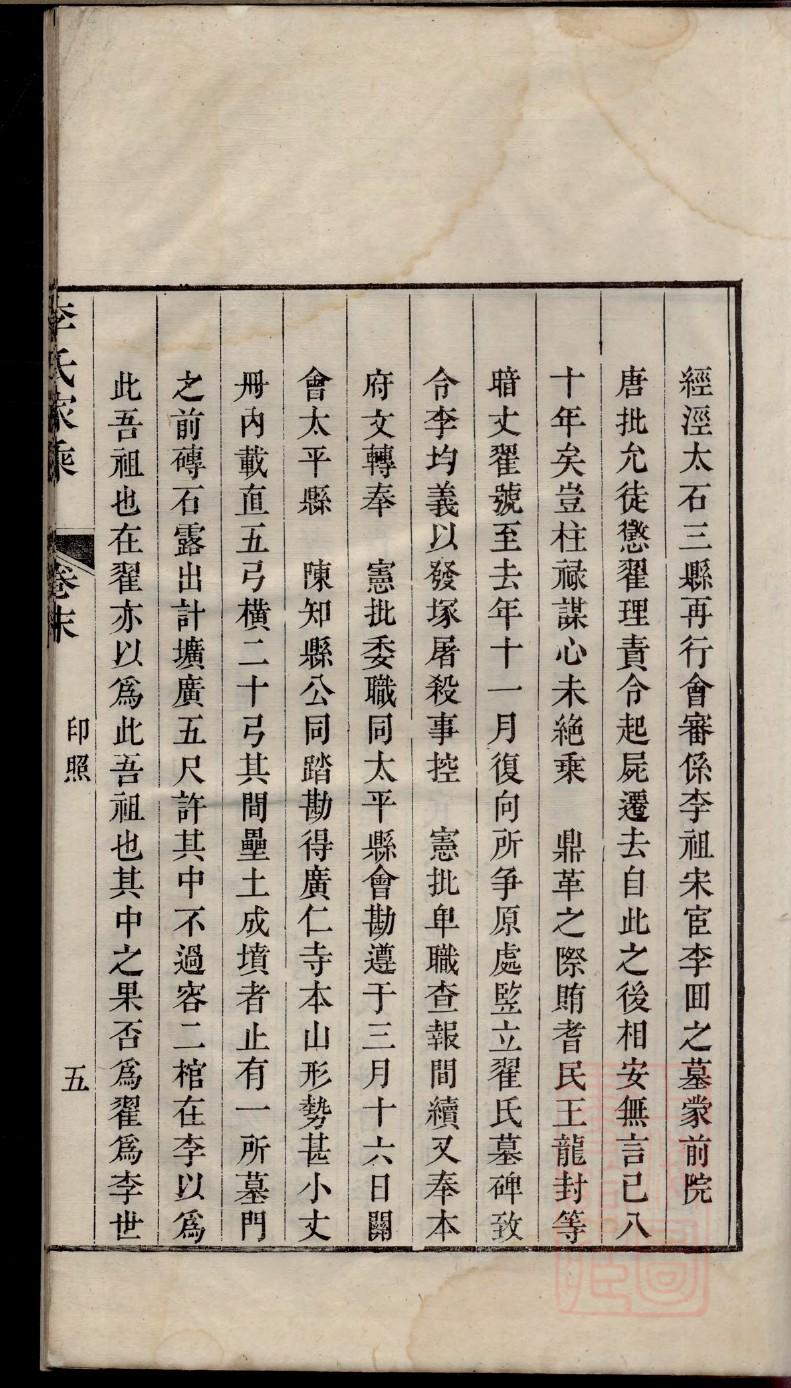 經涇太石三縣再行會審係李祖宋宦李田之墓蒙前院
唐批允徒懲翟理責令起屍遷去自此之後相安無言已八
十年矣豈柱祿謀心未絶乘　鼎革之際賄耆民王龍封等
暗丈翟號至去年十一月復向所争原處監立翟氏墓碑致
令李均義以發塚屠殺事控　憲批卑職查報間續又奉本
府文轉奉　憲批委職同太平縣會勘遵于三月十六日關
會太平縣　陳知縣公同踏勘得廣仁寺本山形勢甚小丈
冊內載直五弓橫二十弓其間壘土成墳者止有一所墓門
之前磚石露出計壙廣五尺許其中不過容二棺在李以爲
此吾祖也在翟亦以爲此吾祖也其中之果否爲翟爲李世
李氏家乘　卷末　印照　五